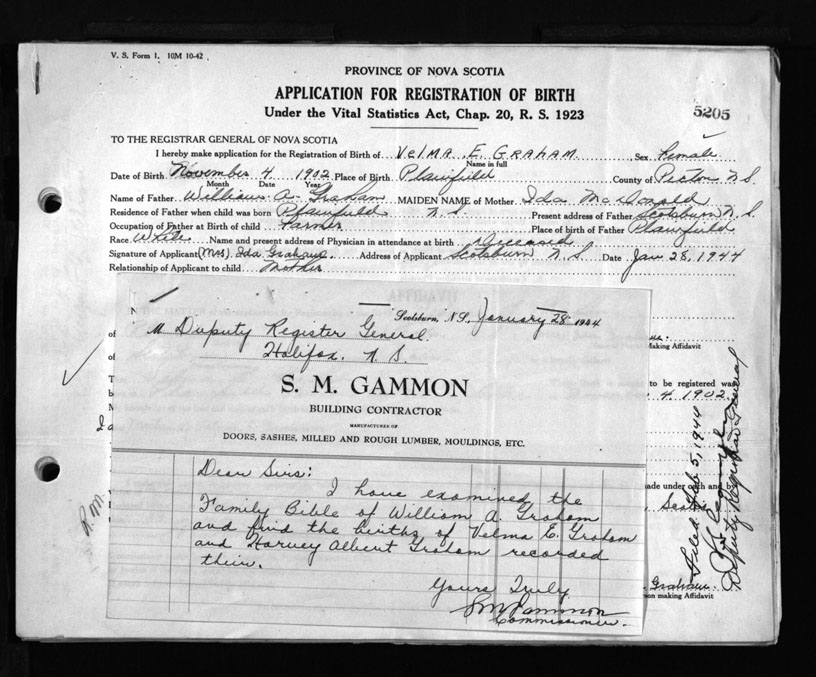 V. S. Form 1. 10M 10-42
PROVINCE OF NOVA SCOTIA
APPLICATION FOR REGISTRATION OF BIRTH
Under the Vital Statistics Act, Chap. 20, R. S. 1923
5205
TO THE REGISTRAR GENERAL OF NOVA SCOTIA
I hereby make application for the Registration of Birth of VELMA E. GRAHAM Sex Female
Name in full
Date of Birth November 4 1902 Place of Birth Plainfield County of Pictou N.S.
Month Date Year
Name of Father William A. Graham MAIDEN NAME of Mother Ida McDonald
Residence of Father when child was born Plainfield N.S. Present address of Father Scotsburn N.S.
Occupation of Father at Birth of child Farmer Place of birth of Father Plainfield
Race White Name and present address of Physician in attendance at birth Deceased
Signature of Applicant (Mrs) Ida Graham Address of Applicant Scotsburn N.S. Date Jan 28, 1944
Relationship of Applicant to child Mother
Scotsburn, N.S., January 28 1944
M Duputy Register General
Halifax. N. S.
S. M. GAMMON
BUILDING CONTRACTOR
MANUFACTURER OF
DOORS, SASHES, MILLED AND ROUGH LUMBER, MOULDINGS, ETC.
Dear Sirs:
I have examined the
Family Bible of William A. Graham
and find the births of Velma E. Graham
and Harvey Albert Graham recorded
their.
Yours Truly
S M Gammon
Commissioner.
Making Affidavit
to be registered was
4. 1902
made under oath and by
Graham
son making Affidavit
Filed Feb 5, 1944
Deputy Registrar General
R. M.